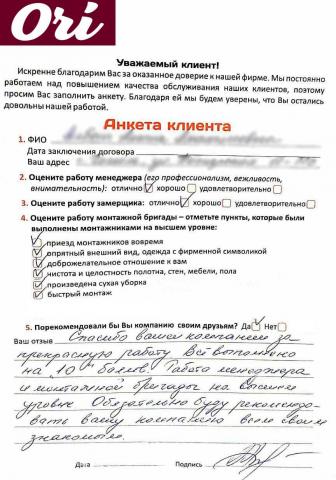 Ori
Уважаемый клиент!
Искренне благодарим Вас за оказанное доверие к нашей фирме. Мы постоянно
работаем над повышением качества обслуживания наших клиентов, поэтому
просим Вас заполнить анкету. Благодаря ей мы будем уверены, что Вы остались
довольны нашей работой.
Анкета клиента
1. ФИО
Дата заключения договора
Ваш адрес
2. Оцените работу менеджера (его профессионализм, вежливость,
внимательность): отлично хорошо удовлетворительно
3. Оцените работу замерщика: отлично хорошо удовлетворительно
4. Оцените работу монтажной бригады – отметьте пункты, которые были
выполнены монтажниками на высшем уровне:
приезд монтажников вовремя
опрятный внешний вид, одежда с фирменной символикой
доброжелательное отношение к вам
чистота и целостность полотна, стен, мебели, пола
произведена сухая уборка
быстрый монтаж
5. Порекомендовали бы Вы компанию своим друзьям? Да Нет
Ваш отзыв Спасибо вашей компании за
прекрасную работу. Всё выполнено
на "10" баллов! Работа менеджера
и монтажной бригады на высшем
уровне. Обязательно буду рекомендо-
вать вашу компанию всем своим
знакомым.
Дата Подпись